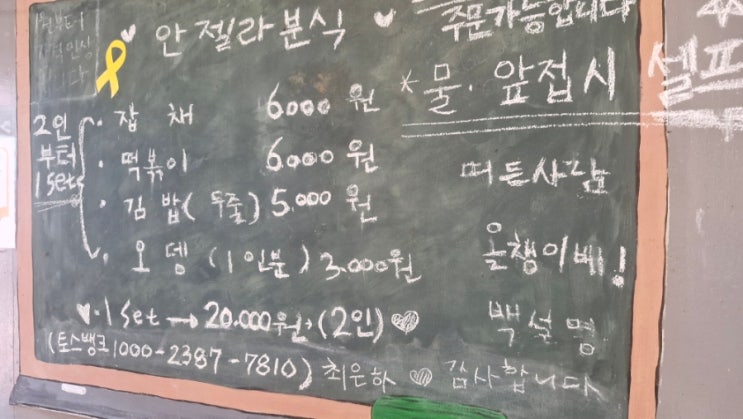 안젤라분식
주문가능합니다
*물. 앞접시 셀프
2인
부터
1 set
잡채 6000원
떡볶이 6000원
김밥(두줄) 5.000원
오뎅(1인분) 3.000원
♥.1 set → 20.000원, (2인) ♡
(토스뱅크 1000-2387-7810) 최은하 ♡ 감사합니다
떠든사람
올챙이베!
백설명